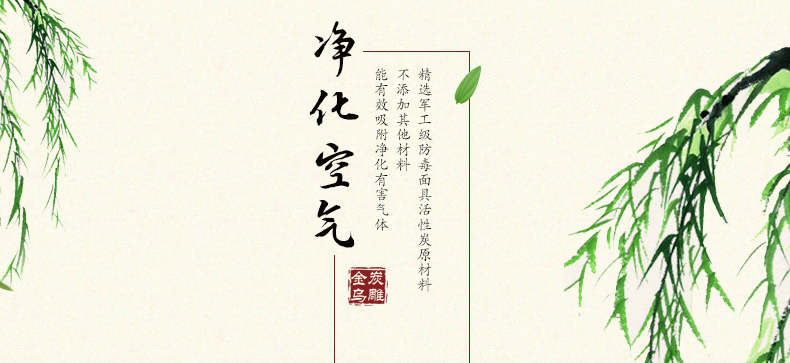 净化空气
精选军工级防毒面具活性炭原材料
不添加其他材料
能有效吸附净化有害气体
炭雕
金乌